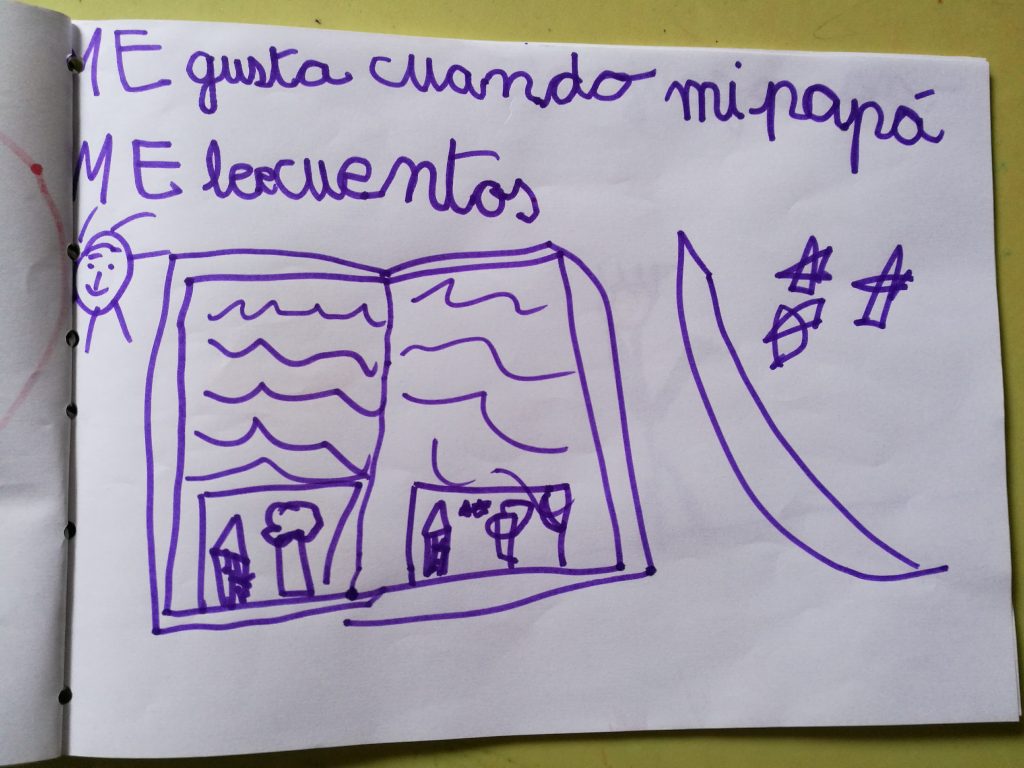 ME gusta cuando mi papá
ME lee cuentos